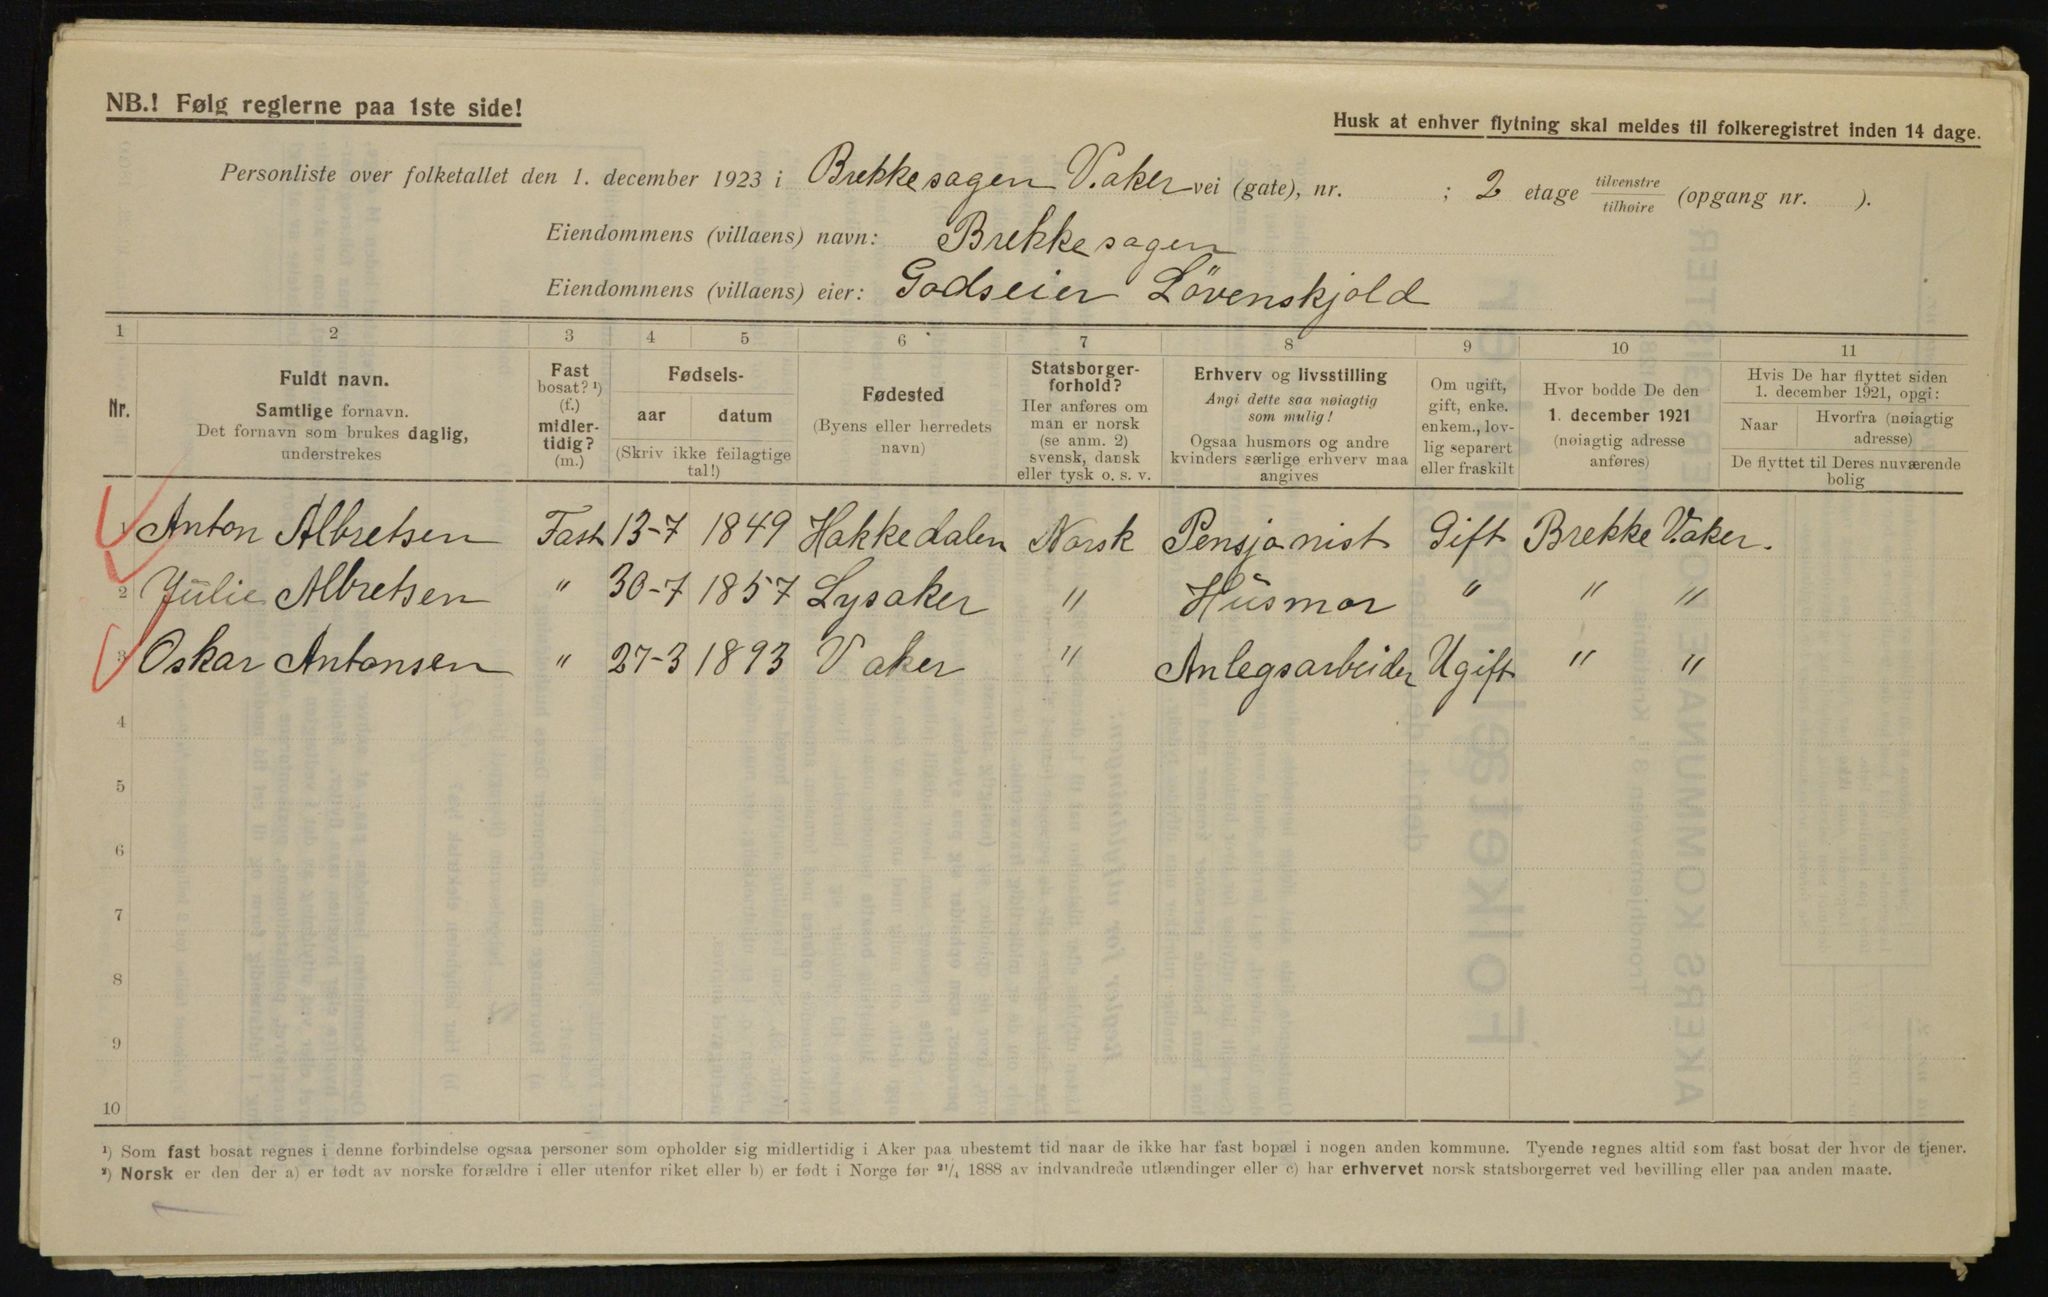 NB.! Følg reglerne paa 1ste side!
Husk at enhver flytning skal meldes til folkeregistret inden 14 dage.
Personliste over folketallet den 1. december 1923 i Brekkesagen V.aker vei (gate), nr. ; 2 etage tilvenstre tilhøire (opgang nr. ).
Eiendommens (villaens) navn: Brekkesagen
Eiendommens (villaens) eier: Godseier Lövenskjold
1 2 3 4 5 6 7 8 9 10 11
Nr.
Fuldt navn.
Samtlige fornavn.
Det fornavn som brukes daglig,
understrekes
Fast
bosat? ¹)
(f.)
midler-
tidig?
(m.)
Fødsels-
aar datum
(Skriv ikke feilagtige
tal!)
Fødested
(Byens eller herredets
navn)
Statsborger-
forhold?
Her anføres om
man er norsk
(se anm. 2)
svensk, dansk
eller tysk o. s. v.
Erhverv og livsstilling
Angi dette saa nøiagtig
som mulig!
Ogsaa husmors og andre
kvinders særlige erhverv maa
angives
Om ugift,
gift, enke.
enkem., lov-
lig separert
eller fraskilt
Hvor bodde De den
1. december 1921
(nøiagtig adresse
anføres)
Hvis De har flyttet siden
1. december 1921, opgi:
Naar
Hvorfra (nøiagtig
adresse)
De flyttet til Deres nuværende
bolig
1 Anton Albretsen Fast 13-7 1849 Hakkedalen Norsk Pensjonist Gift Brekke V.aker.
2 Julie Albretsen " 30-7 1857 Lysaker " Husmor " " "
3 Oskar Antonsen " 27-3 1893 V aker " Anlegsarbeider Ugift " "
4
5
6
7
8
9
10
¹) Som fast bosat regnes i denne forbindelse ogsaa personer som opholder sig midlertidig i Aker paa ubestemt tid naar de ikke har fast bopæl i nogen anden kommune. Tyende regnes altid som fast bosat der hvor de tjener.
²) Norsk er den der a) er født av norske forældre i eller utenfor riket eller b) er født i Norge før ²¹/₄ 1888 av indvandrede utlændinger eller c) har erhvervet norsk statsborgerret ved bevilling eller paa anden maate.